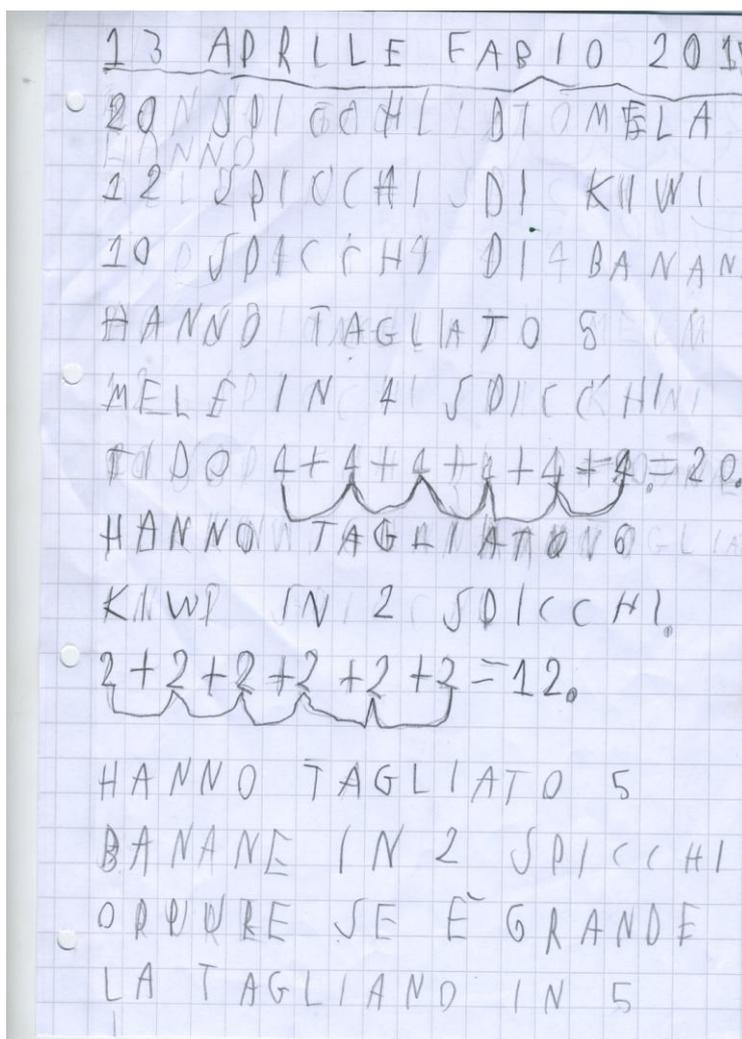 13 APRILLE FABIO 201
20 SPICCHI DI MELA
12 SPICCHI DI KIWI
10 SPICCHI DI BANAN
HANNO TAGLIATO 5
MELE IN 4 SPICCHI
TIPO 4+4+4+4+4+4.=20.
HANNO TAGLIATO 6
KIWI IN 2 SPICCHI.
2+2+2+2+2+2=12.
HANNO TAGLIATO 5
BANANE IN 2 SPICCHI
OPPURE SE È GRANDE
LA TAGLIANO IN 5